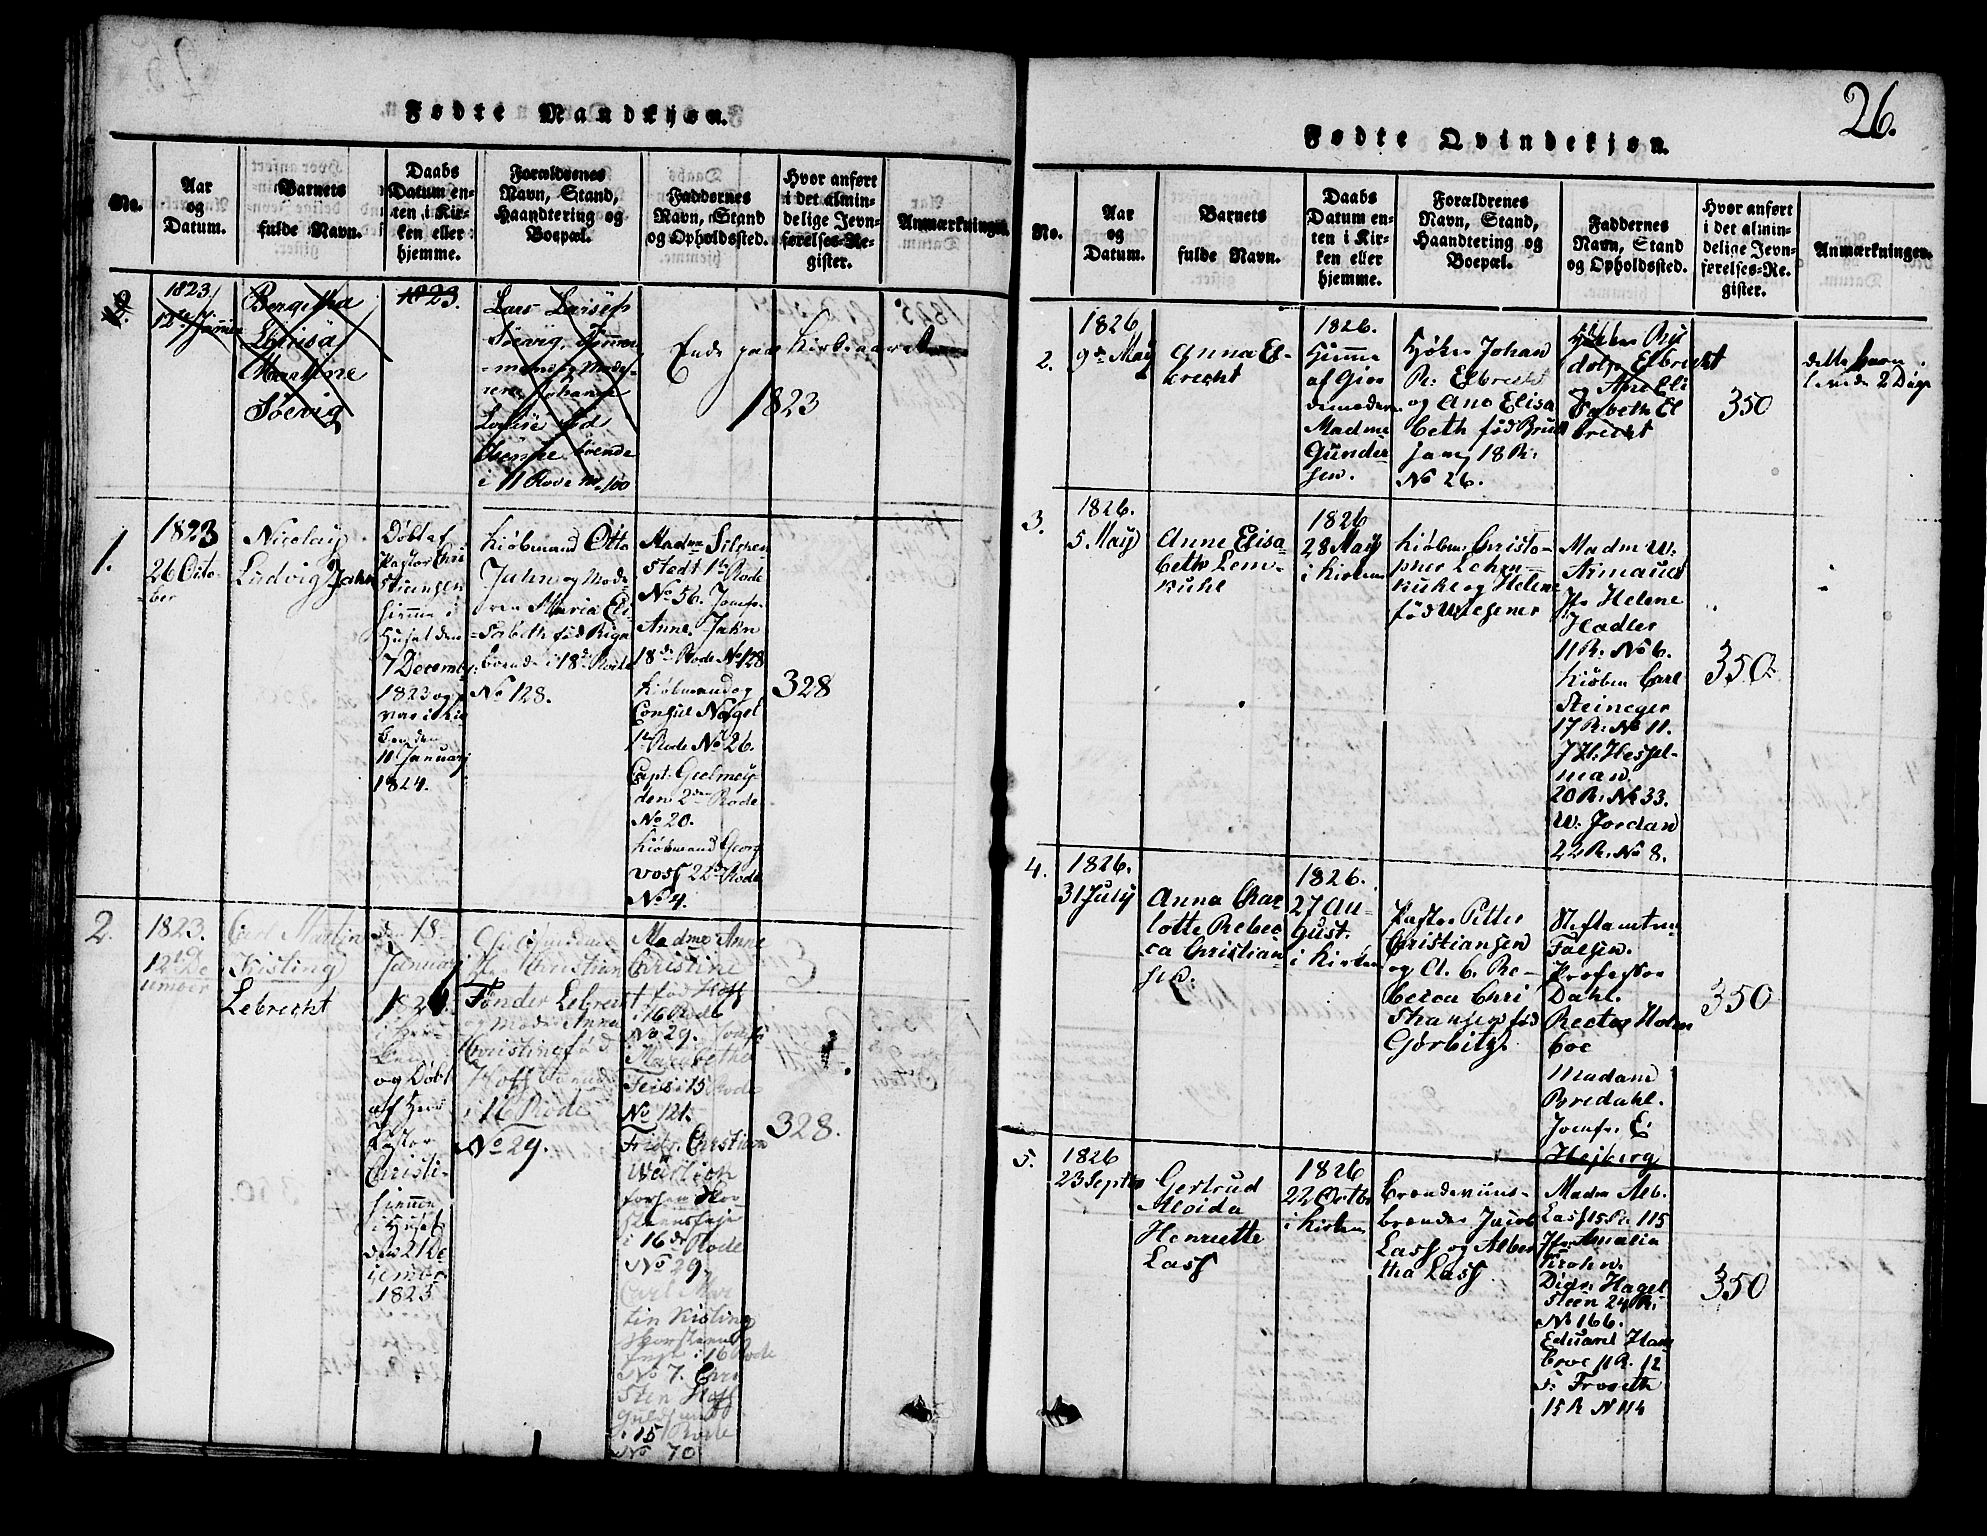 26.
Fødte Mandkjøn.
No.
Aar
og
Datum.
Barnets
fulde Navn.
Daabs
Datum en-
ten i Kir-
ken eller
hjemme.
Forældrenes
Navn, Stand,
Haandtering og
Boepæl.
Faddernes
Navn, Stand
og Opholdssted.
Hvor anført
i det almin-
delige Jevn-
førelses-Re-
gister.
Anmærkninger.
1823.
Bergitha
Lovisa
Martine
Søevig
1823.
Lars Larsen
Søevig
født
boende
i 11 Rode No 100
Ende paa Kirkeaaret
1823
1.
1823
26 Octo-
ber
Nicolay
Ludvig Jahn
Døbt af
Pastor Chri
stiansen
hjemme i
Huset den
7 Decembr.
1823 og
var i Kir
den
11 Januarj
1824.
Kiøbmand Otto
Jahn og Mode-
ren Maria Eli-
sabeth fød
boende i 18de Rode
No 128.
Madme
stedt 1te Rode
No 56. Jomfr.
Anne Jahn
18de Rode No 128
Kiøbmand og
Consul
1te Rode No 26.
Capt: Geelmey-
den 2den Rode
No 20.
Kiøbmand Georg
Voss 22de Rode
No 4.
328
2.
1823.
12te De
cember
Carl Martin
Kisling
Lebrecht
den 18
Januarj
1824
og Døbt
af Herr
Pastor
Christi-
hjemme
i Huset
den 21 De
cembr
1823
Christian
Tønder Lebrecht
og Mode: Anna
Christine fød
Hoff boende
i 16 Rode
No 29.
Madme Anne
Christine
fød Hoff
i 16 Rode
No 29. Jomfr
Maralretha
Feis i 15 Rode
No 121.
Fridr. Christian
i 16de Rode
No 29.
Carl Mar
tin Kisling
i 16 Rode
No 7. Chri
sten Hoff
Guldsmed
i 15 Rode
No 70
328.
Fødte Qvindekjøn.
No.
Aar
og
Datum.
Barnets
fulde Navn.
Daabs
Datum en-
ten i Kir-
ken eller
hjemme.
Forældrenes
Navn, Stand,
Haandtering og
Boepæl.
Faddernes
Navn, Stand
og Opholdssted.
Hvor anført
i det almin-
delige Jevn-
førelses-Re-
gister.
Anmærkninger.
2.
1826
9de May
Anna El-
brecht
1826.
Hjemme
af Gior
demoderen
Madme
Gunder
sen.
Kjøbm Johan
R: Elbrecht
og Ane Elisa
beth fød Bruun
jam, 18 R:
No 26.
Kjøbm Ru
dolph Elbrecht
og Ane Eli
sabeth El
brecht
350
dette barn
levede 2 Dage
3.
1826.
5 May
Anne Elisa-
beth Lem-
kuhl
1826
28 May
i Kirken
Kiøbm: Christo-
pher Lehm-
kuhl og Helene
fød Wiesener
Madm W.
Armauer
Jfr Helene
Hadler
11 R: No 6.
Kiøbm Carl
Steineger
17 R: No 11.
J H: Hessel-
man.
20 R: No 33.
W. Jordan
22 R. No 8.
350.
4.
1826.
31 July
Anna Char
lotte Rebec
ca Christian-
sen.
1826.
27 Au-
gust.
i Kirken
Pastor Pitter
Christiansen
og A. C. Re-
becca Chri
stiansen fød
Gørbitz.
Stiftamtm
Falsen.
Professor
Dahl.
Rector Holm
boe
Madam
Bredahl.
Jomfr. E:
Hejberg
350
5.
1826
23 Septr
Gertrud
Aleida
Henriette
Lass
1826
22 Octbr
i Kirken
Brændeviins-
brænder Jacob
Lass og Alber
tha Lass
Madm Alb.
Lass 15 R. 115
Jfr Amalia
Krohn.
Didr: Hagel
steen 24 R:
No 166.
Eduard Ham
broe 11 R. 12
F. Troseth
15 R N 114
350